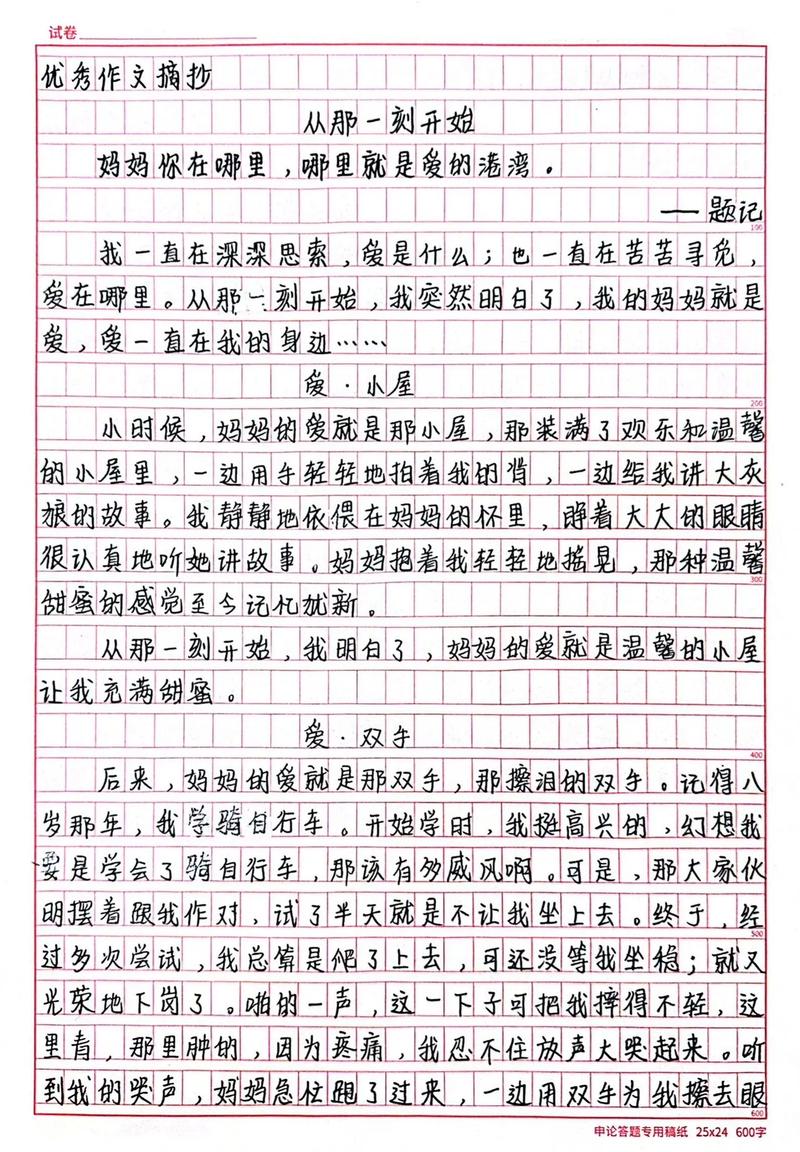 试卷
优秀作文摘抄
从那一刻开始
妈妈你在哪里，哪里就是爱的港湾。
——题记
100
我一直在深深思索，爱是什么；也一直在苦苦寻觅，
爱在哪里。从那一刻开始，我突然明白了，我的妈妈就是
爱，爱一直在我的身边……
爱·小屋
200
小时候，妈妈的爱就是那小屋，那装满了欢乐和温馨
的小屋里，一边用手轻轻地拍着我的背，一边给我讲大灰
狼的故事。我静静地依偎在妈妈的怀里，睁着大大的眼睛
很认真地听她讲故事。妈妈抱着我轻轻地摇晃，那种温馨
300
甜蜜的感觉至今记忆犹新。
从那一刻开始，我明白了，妈妈的爱就是温馨的小屋
让我充满甜蜜。
爱·双手
400
后来，妈妈的爱就是那双手，那擦泪的双手。记得八
岁那年，我学骑自行车。开始学时，我挺高兴的，幻想我
要是学会了骑自行车，那该有多威风啊。可是，那大家伙
明摆着跟我作对，试了半天就是不让我坐上去。终于，经
500
过多次尝试，我总算是爬了上去，可还没等我坐稳；就又
光荣地下岗了。啪的一声，这一下子可把我摔得不轻，这
里青，那里肿的，因为疼痛，我忍不住放声大哭起来。听
到我的哭声，妈妈急忙跑了过来，一边用双手为我擦去眼
600
申论答题专用稿纸 25x24 600字